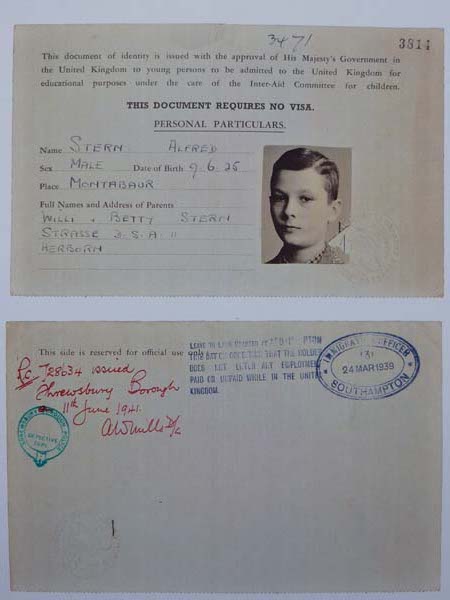 3471
3814
This document of identity is issued with the approval of His Majesty's Government in
the United Kingdom to young persons to be admitted to the United Kingdom for
educational purposes under the care of the Inter-Aid Committee for children.
THIS DOCUMENT REQUIRES NO VISA.
PERSONAL PARTICULARS.
Name STERN ALFRED
Sex MALE Date of Birth 9.6.25
Place MONTABAUR
Full Names and Address of Parents
WILLI + BETTY STERN
STRASSE D.S.A. 11
HERBORN
This side is reserved for official use only
LEAVE TO LAND GRANTED AT
THIS DAY ON CONDITION THAT THE HOLDER
DOES NOT ENTER ANY EMPLOYMENT
PAID OR UNPAID WHILE IN THE UNITED
KINGDOM.
IMMIGRATION OFFICER
(3)
24 MAR 1939
SOUTHAMPTON
R.C. 728634 issued
Shrewsbury Borough
11th June 1941.
DETECTIVE
DEPT.